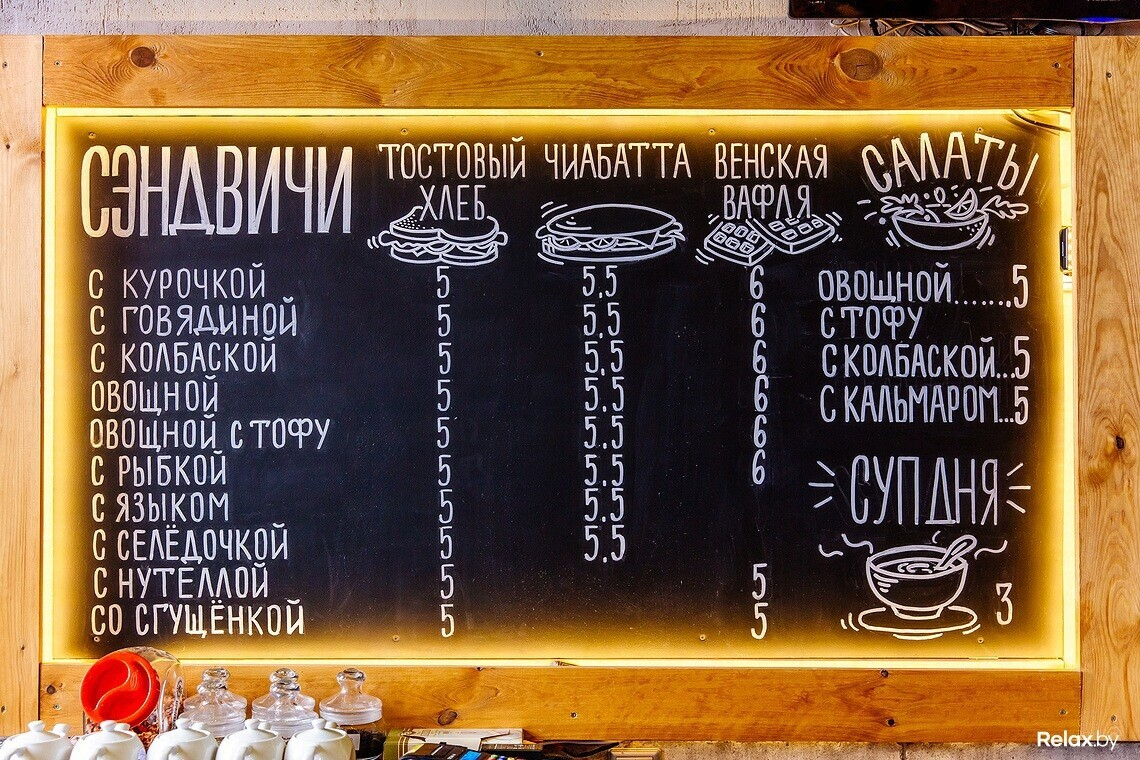 СЭНДВИЧИ ТОСТОВЫЙ ХЛЕБ ЧИАБАТТА ВЕНСКАЯ ВАФЛЯ
С КУРОЧКОЙ 5 5,5 6
С ГОВЯДИНОЙ 5 5,5 6
С КОЛБАСКОЙ 5 5,5 6
ОВОЩНОЙ 5 5,5 6
ОВОЩНОЙ С ТОФУ 5 5,5 6
С РЫБКОЙ 5 5,5 6
С ЯЗЫКОМ 5 5,5
С СЕЛЁДОЧКОЙ 5 5,5
С НУТЕЛЛОЙ 5 5
СО СГУЩЁНКОЙ 5 5
САЛАТЫ
ОВОЩНОЙ.......5
С ТОФУ
С КОЛБАСКОЙ...5
С КАЛЬМАРОМ...5
СУП ДНЯ
3
Relax.by